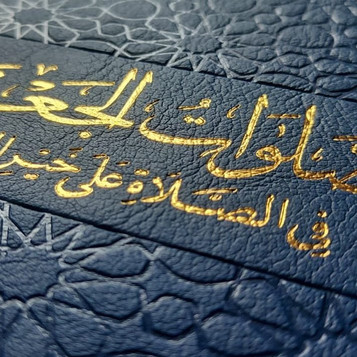 صلوات الجعف
في الصلاة على خير ال